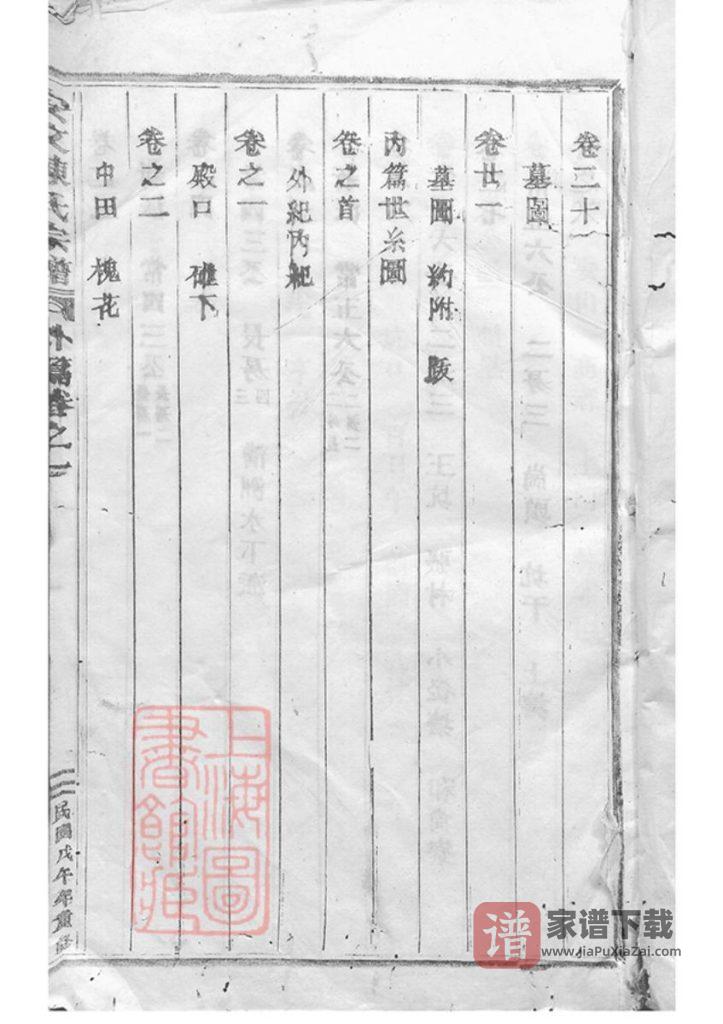 卷二十
墓圖
卷廿一
墓圖 約附 跋
內篇世系圖
卷之首
外紀內紀
卷之一
殿口 碓下
卷之二
中田 槐花
陳氏宗譜 外篇卷之一
民國戊午年重修
上海圖書館藏
谱 家谱下载
www.JiaPuXiaZai.com